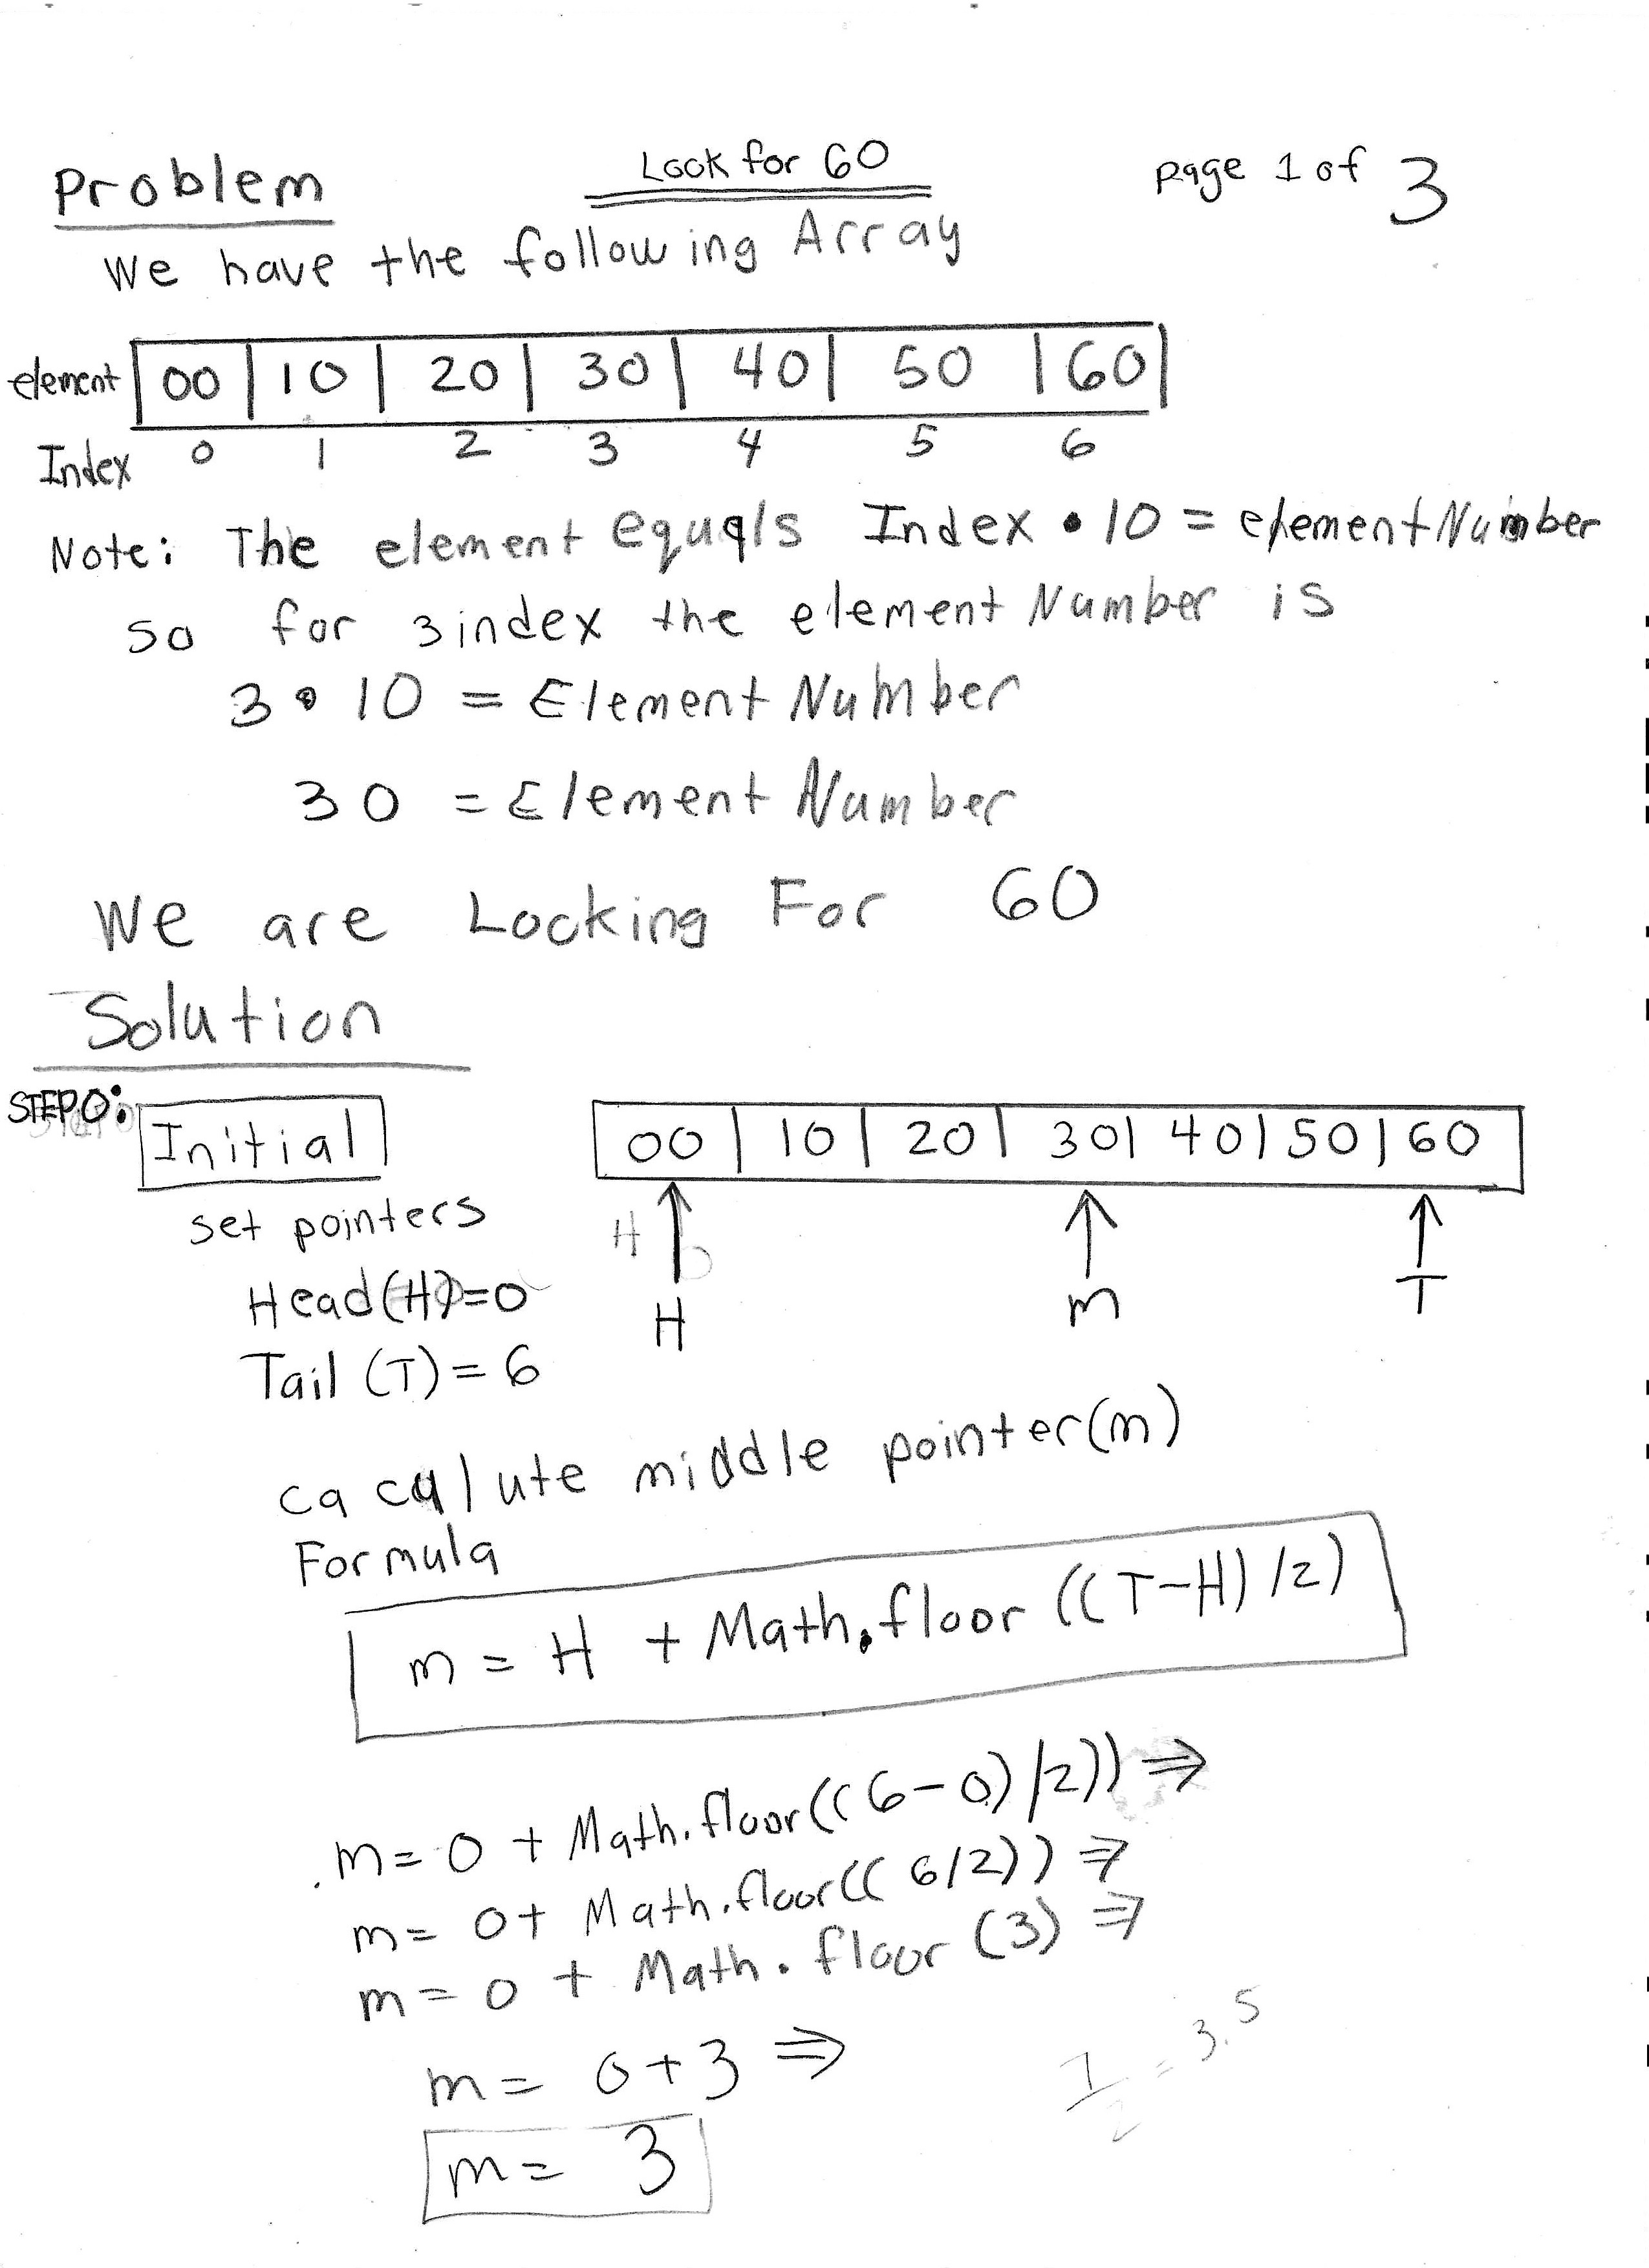 Problem
Look for 60
page 1 of 3
We have the following Array
element 00 | 10 | 20 | 30 | 40 | 50 | 60
Index 0 1 2 3 4 5 6
Note: The element equals Index • 10 = elementNumber
so for 3 index the element Number is
3 • 10 = Element Number
30 = Element Number
We are Looking For 60
Solution
STEP 0:
Initial
00 | 10 | 20 | 30 | 40 | 50 | 60
set pointers
H
Head (H) = 0
H m T
Tail (T) = 6
cacalute middle pointer (m)
Formula
m = H + Math.floor ((T-H) /2)
m = 0 + Math.floor((6-0)/2)) ⇒
m = 0 + Math.floor((6/2)) ⇒
m = 0 + Math.floor (3) ⇒
m = 0+3 ⇒
7/2 = 3.5
m = 3